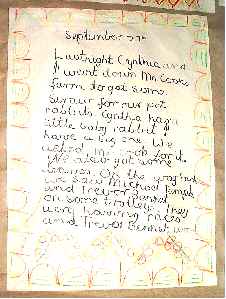 September 27th
Last night Cynthia and
I went down Mr Cooks
farm to get some
straw for our pet
rabbits Cynthia has a
little baby rabbit I
have a big one. We
asked Mr Cook for it.
We also got some
leaves. On the way back
we saw Michael Temple
and Trevor Bennet
on some trolleys They
were having races
and Trevor Bennet won